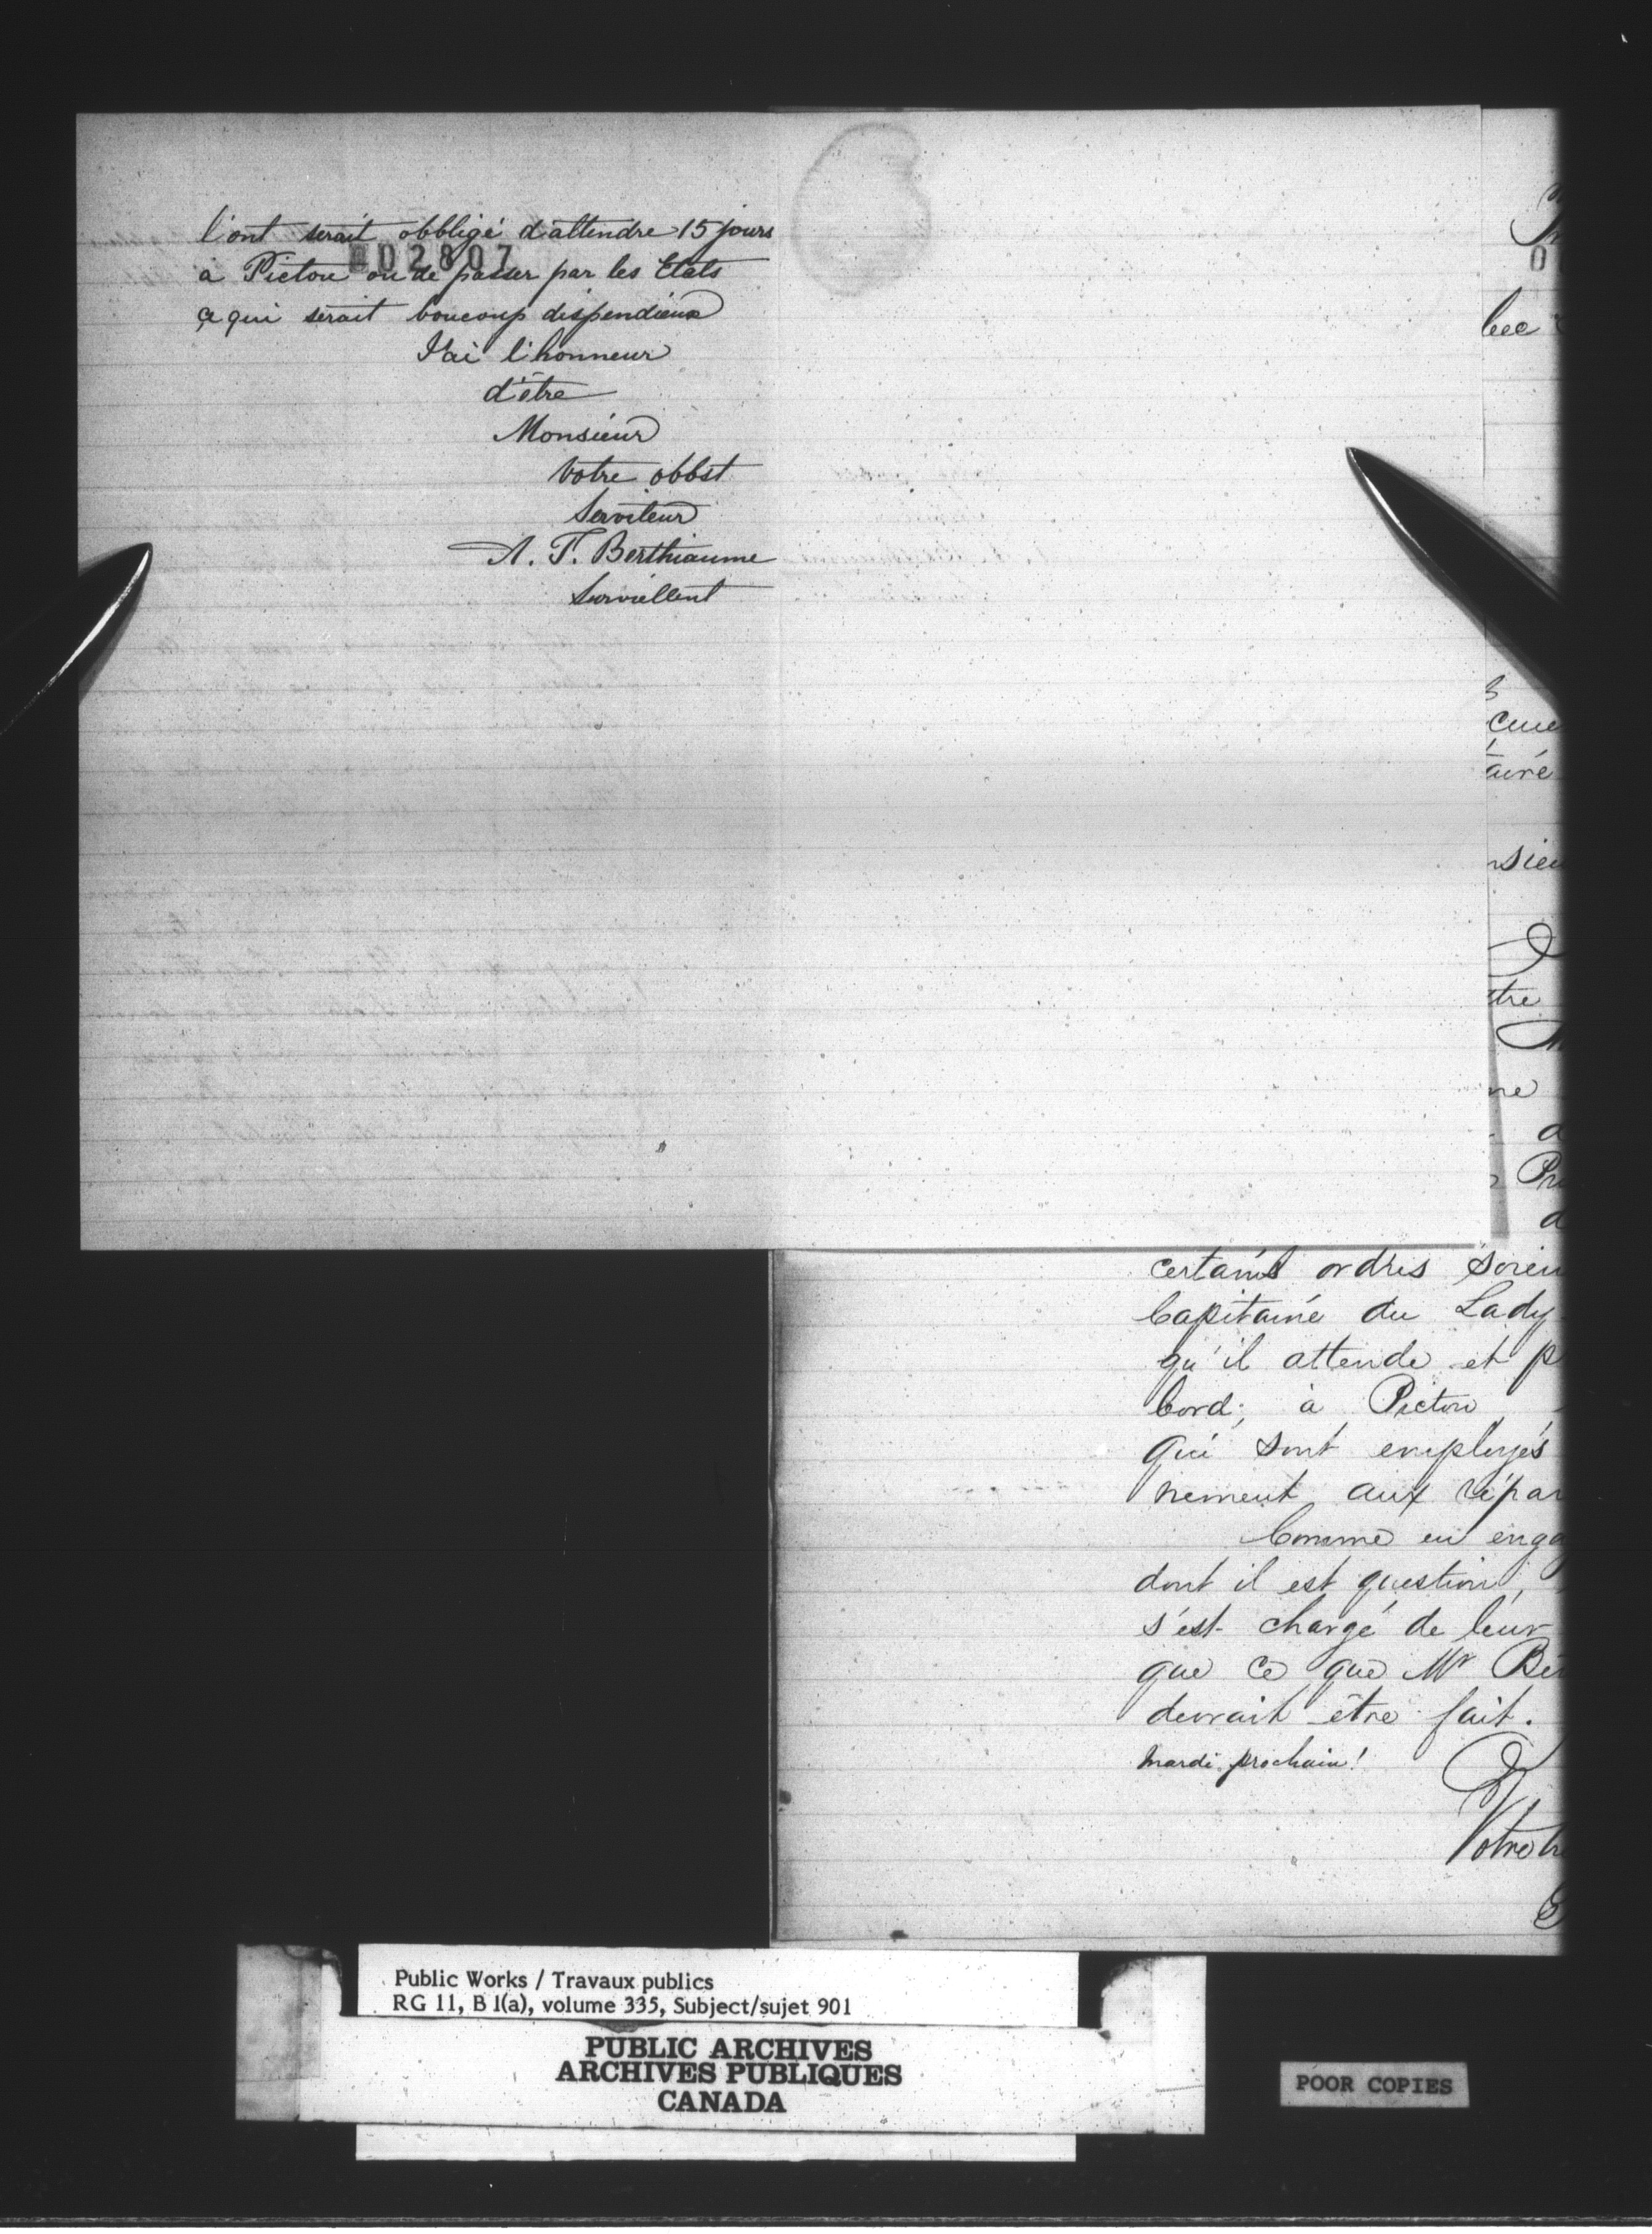 l'ont serait obbligé d'attendre 15 jours
02807
à Pictou ou de passer par les Etats
ce qui serait boucoup dispendieux
J'ai l'honneur
d'être
Monsieur
Votre obbst
Serviteur
A. T. Berthiaume
Surviellent
lec
aire
nsieu
tre
ne
Pr
certains ordres soien
Capitaine du Lady
qu'il attende et p
bord, à Pictou
qui sont employés
nement aux répar
Comme en enga
dont il est question,
s'est chargé de leur
que ce que Mr Ber
devrait être fait.
mardi prochain!
Votre tr
Public Works / Travaux publics
RG 11, B 1(a), volume 335, Subject/sujet 901
PUBLIC ARCHIVES
ARCHIVES PUBLIQUES
CANADA
POOR COPIES